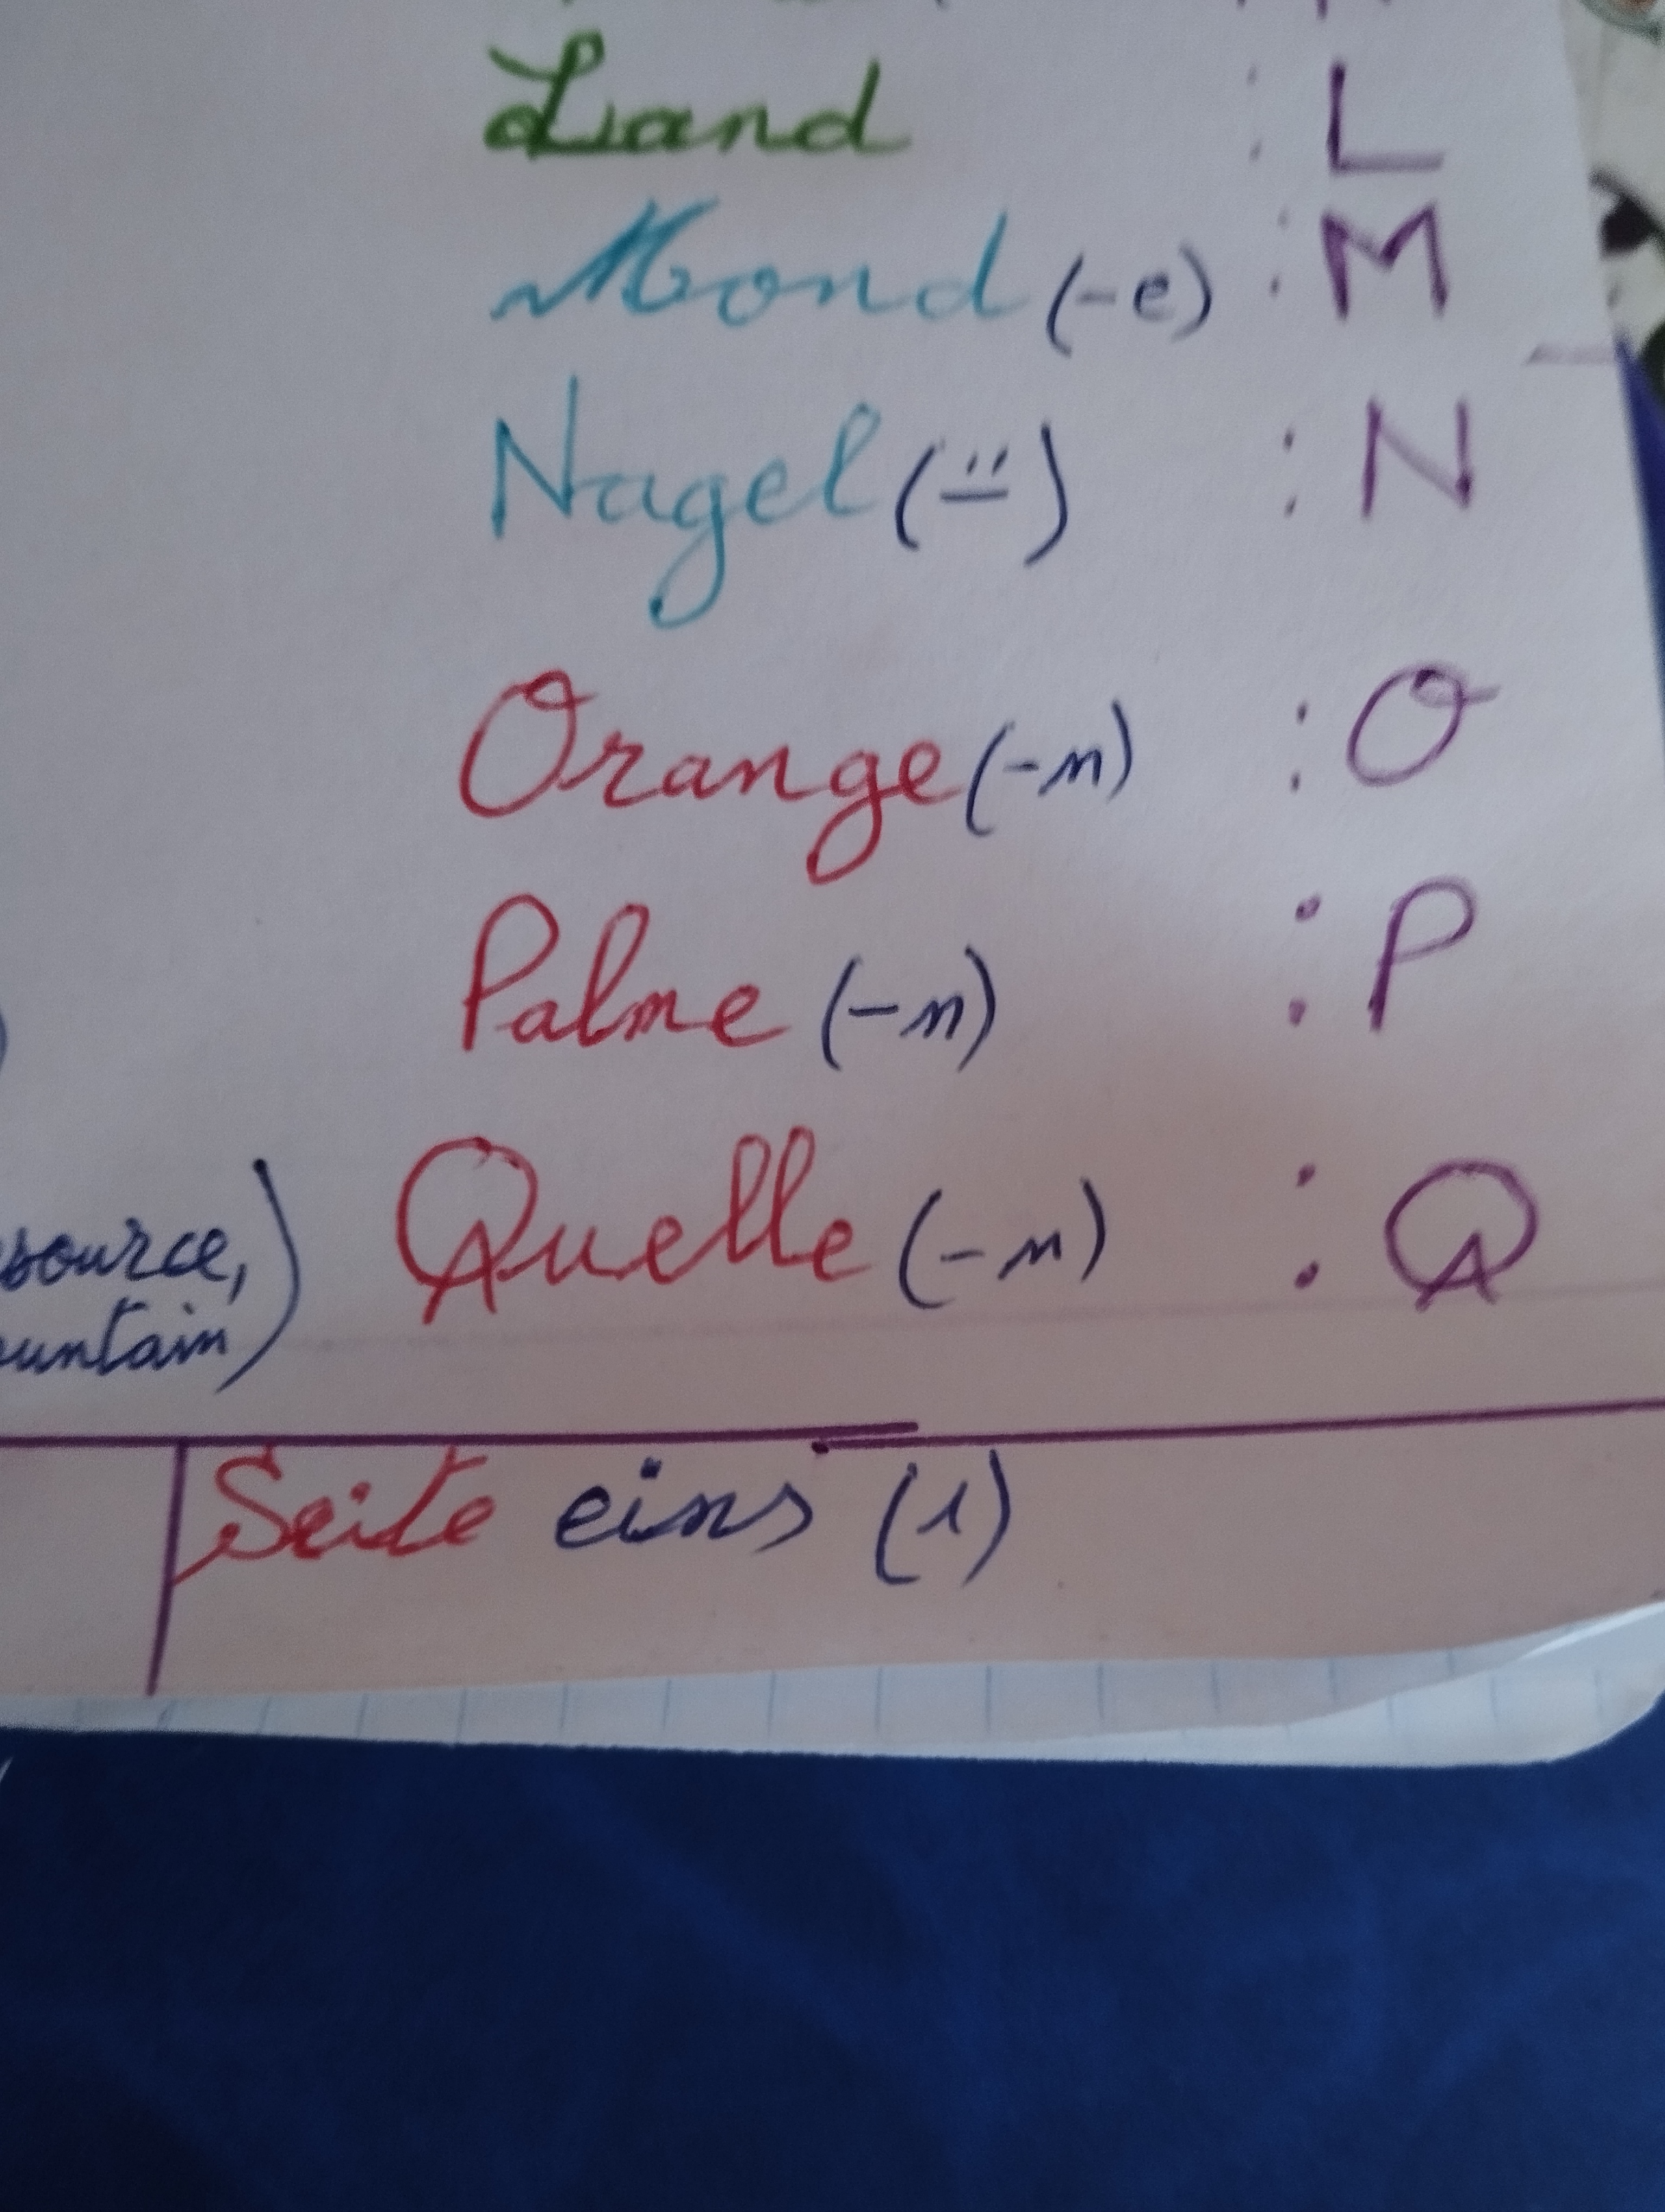 Land : L
Mond (-e) : M
Nagel (-̈) : N
Orange (-n) : O
Palme (-n) : P
source,) Quelle (-n) : Q
Seite eins (1)